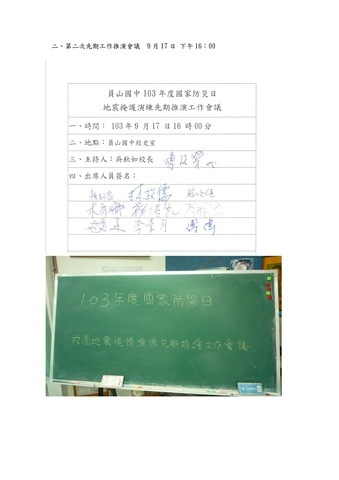 二、第二次先期工作推演會議 9月17日 下午16：00
員山國中103年度國家防災日
地震掩護演練先期推演工作會議
一、時間： 103年9月17日16時00分
二、地點：員山國中校史室
三、主持人：吳秋如校長
四、出席人員簽名：
103年度國家防災日
校園地震掩護演練先期推演工作會議